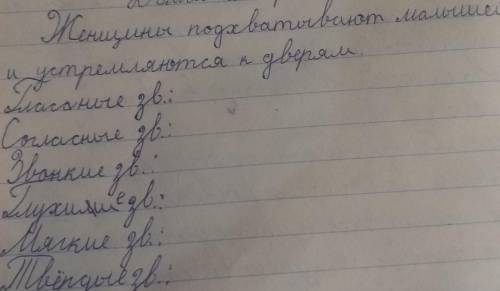 Женщины подхватывают малышей
и устремляются к дверям.
Гласные зв.:
Согласные зв.:
Звонкие зв.:
Глухие зв.:
Мягкие зв.:
Твёрдые зв.: